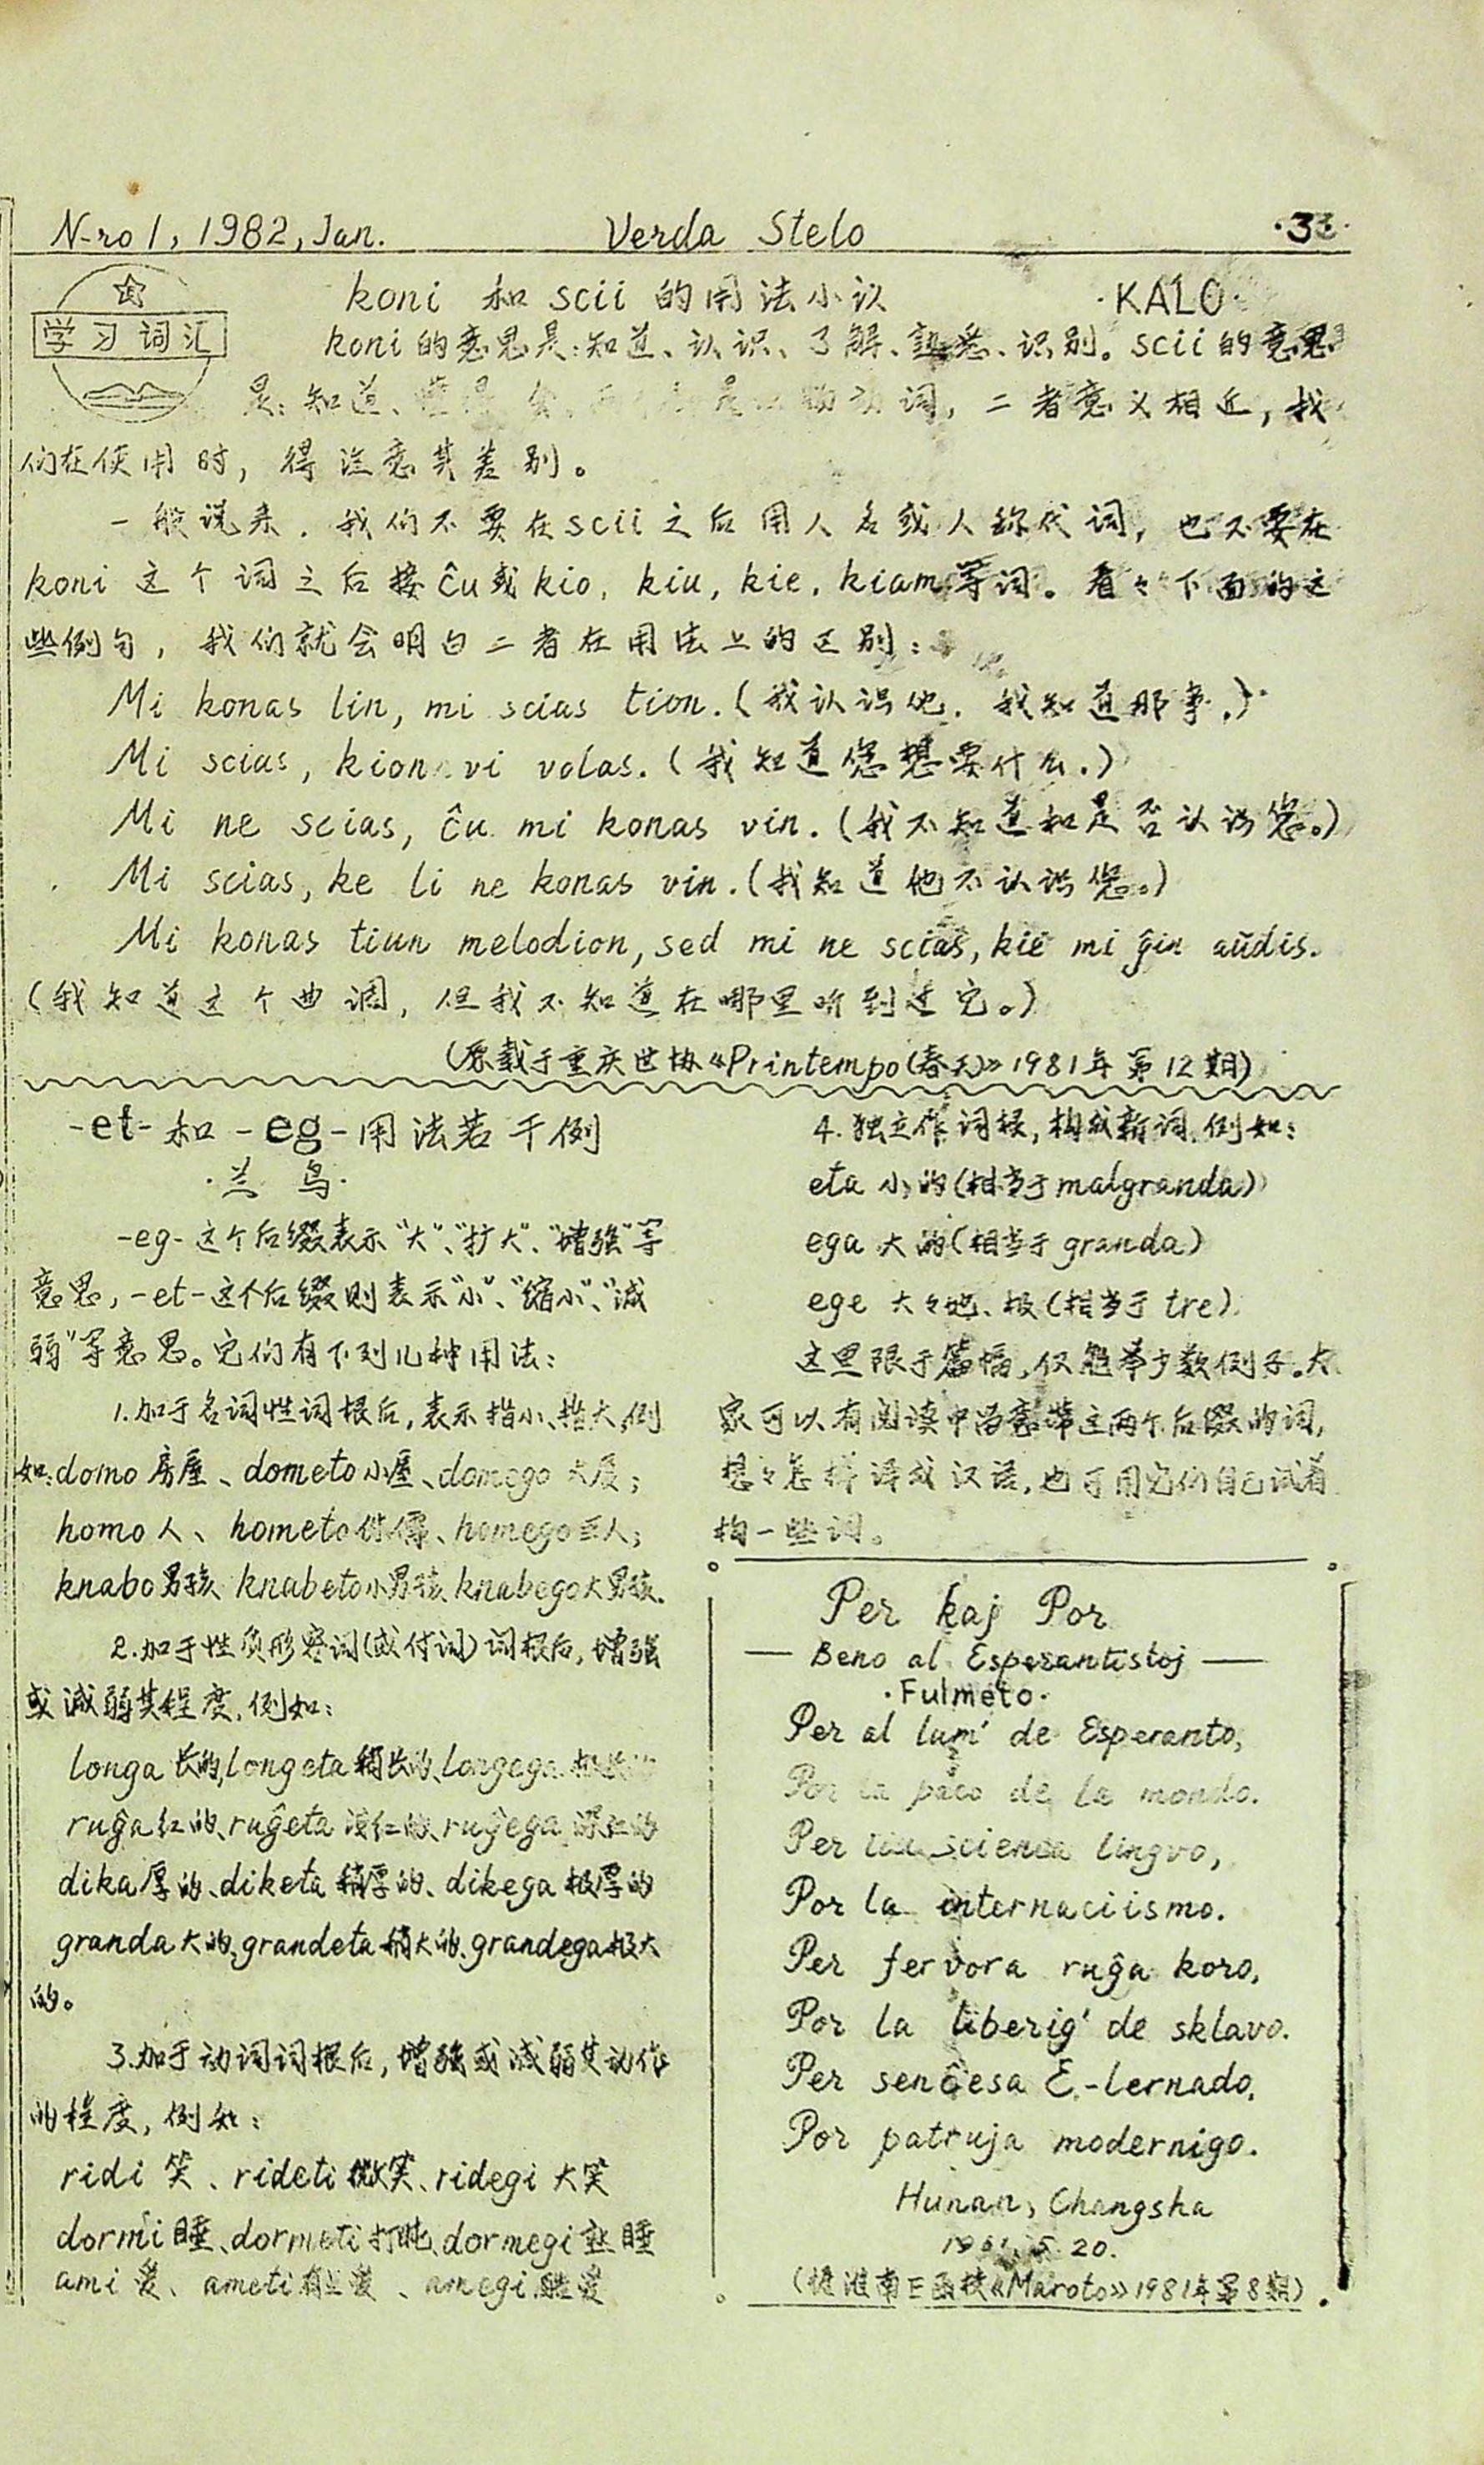 N-ro 1, 1982, Jan. Verda Stelo
学习词汇
koni 和 scii 的用法小议 ·KALO·
koni的意思是:知道、认识、了解、熟悉、识别。scii的意思
是:知道、 动词, 二者意义相近, 我
们在使用时, 得注意其差别。
一般说来. 我们不要在scii之后用人名或人称代词, 也不要在
koni 这个词之后接ĉu或kio, kiu, kie, kiam等词。看々下面的这
些例句, 我们就会明白二者在用法上的区别:
Mi konas lin, mi scias tion.(我认识他. 我知道那事.)
Mi scias, kion vi volas.(我知道您想要什么.)
Mi ne scias, ĉu mi konas vin.(我不知道和是否认识您。)
Mi scias, ke li ne konas vin.(我知道他不认识您。)
Mi konas tiun melodion, sed mi ne scias, kie mi ĝin aŭdis.
(我知道这个曲调, 但我不知道在哪里听到过它。)
(原载于重庆世协《Printempo(春天)》1981年第12期)
-et- 和 -eg- 用法若干例
·兰 鸟·
-eg- 这个后缀表示“大”、“扩大”、“增强”等
意思, -et-这个后缀则表示“小”、“缩小”、“减
弱”等意思。它们有下列几种用法:
1.加于名词性词根后,表示指小、指大,例
如:domo 房屋、dometo小屋、domego 大厦;
homo 人、hometo侏儒、homego巨人;
knabo男孩 knabeto小男孩 knabego大男孩.
2.加于性质形容词(或付词)词根后, 增强
或减弱其程度,例如:
longa 长的,longeta 稍长的、longega
ruĝa红的、ruĝeta 浅红的、ruĝega 深红的
dika厚的、diketa 稍厚的、dikega 极厚的
granda大的、grandeta稍大的、grandega极大
的。
3.加于动词词根后, 增强或减弱其动作
的程度, 例如:
ridi 笑、rideti 微笑、ridegi 大笑
dormi 睡、dormeti打盹、dormegi 熟睡
ami 爱、ameti 有些爱、amegi 酷爱
4.独立作词根, 构成新词,例如:
eta 小的(相当于malgranda)
ega 大的(相当于granda)
ege 大々地、极(相当于tre)
这里限于篇幅,仅能举少数例子。大
家可以有阅读中留意带这两个后缀的词,
想々怎样译成汉语,也可用它们自己试着
构一些词。
Per kaj Por
— Beno al Esperantistoj —
·Fulmeto·
Per al lum' de Esperanto,
Por la paco de la mondo.
Per scienca lingvo,
Por la internaciismo.
Per fervora ruĝa koro,
Por la liberig' de sklavo.
Per senĉesa E.-lernado,
Por patruja modernigo.
Hunan, Changsha
5. 20.
淮南 《Maroto》1981年第8期)